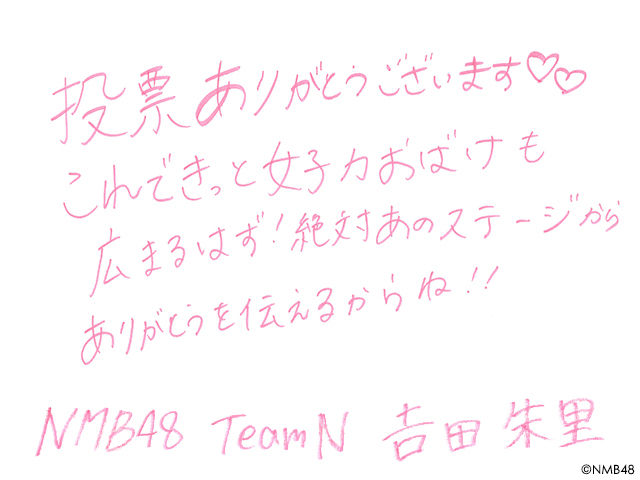 投票ありがとうございます♡♡
これできっと女子力おばけも
広まるはず!絶対あのステージから
ありがとうを伝えるからね!!
NMB48 TeamN 吉田朱里
©NMB48